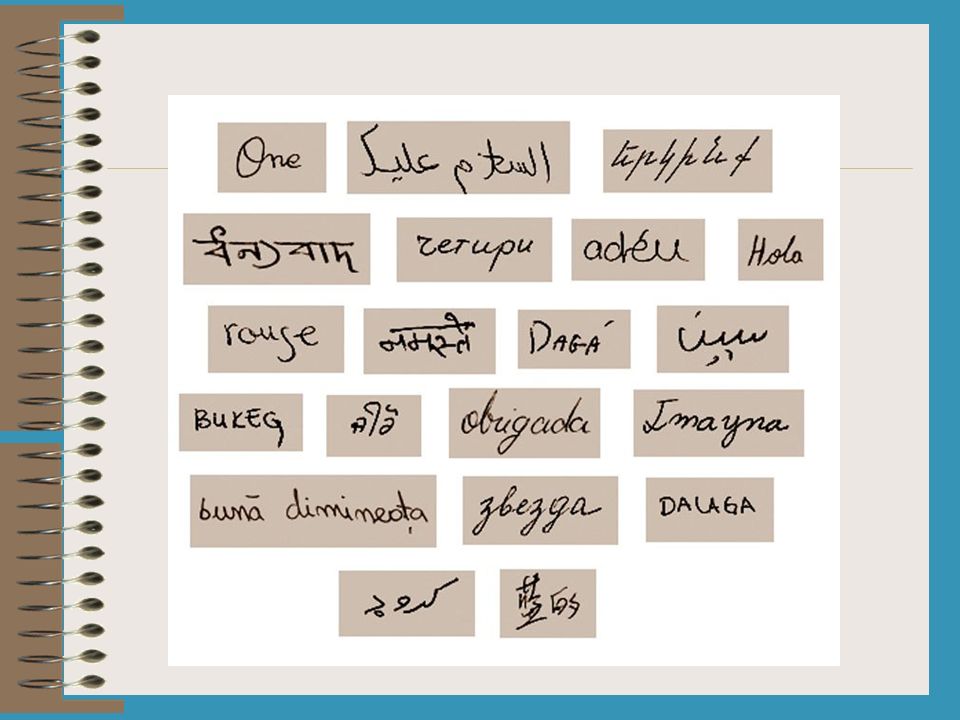 One السلام عليك երկինք
ধন্যবাদ четири adéu Hola
rouge नमस्ते DAGÁ
BUKEG obrigada Imayna
bună dimineața звезда DALAGA
藍的